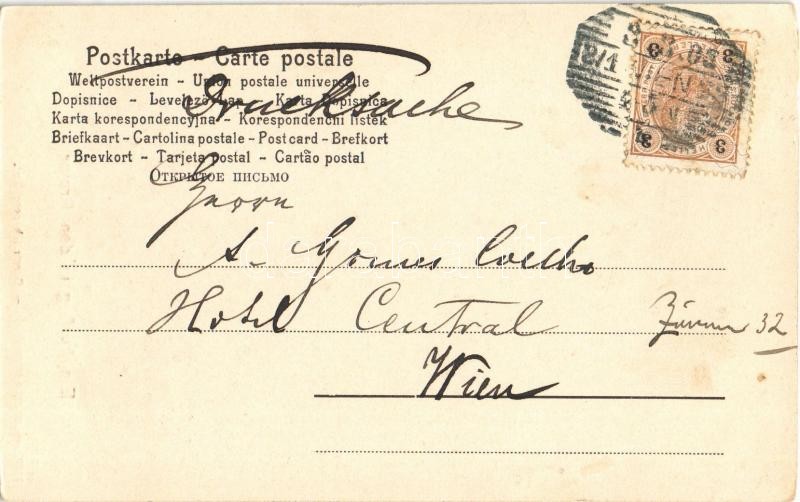 Postkarte - Carte postale
Weltpostverein - Union postale universelle
Dopisnice - Levelező-Lap - Karta Dopisnica
Karta korespondencyjna - Korespondenčni listek
Briefkaart - Cartolina postale - Post card - Brefkort
Brevkort - Tarjeta postal - Cartão postal
Открытое письмо
Drucksache
Herrn
A. Gomes Coelho
Hotel Central Zimmer 32
Wien
3 3
3 3